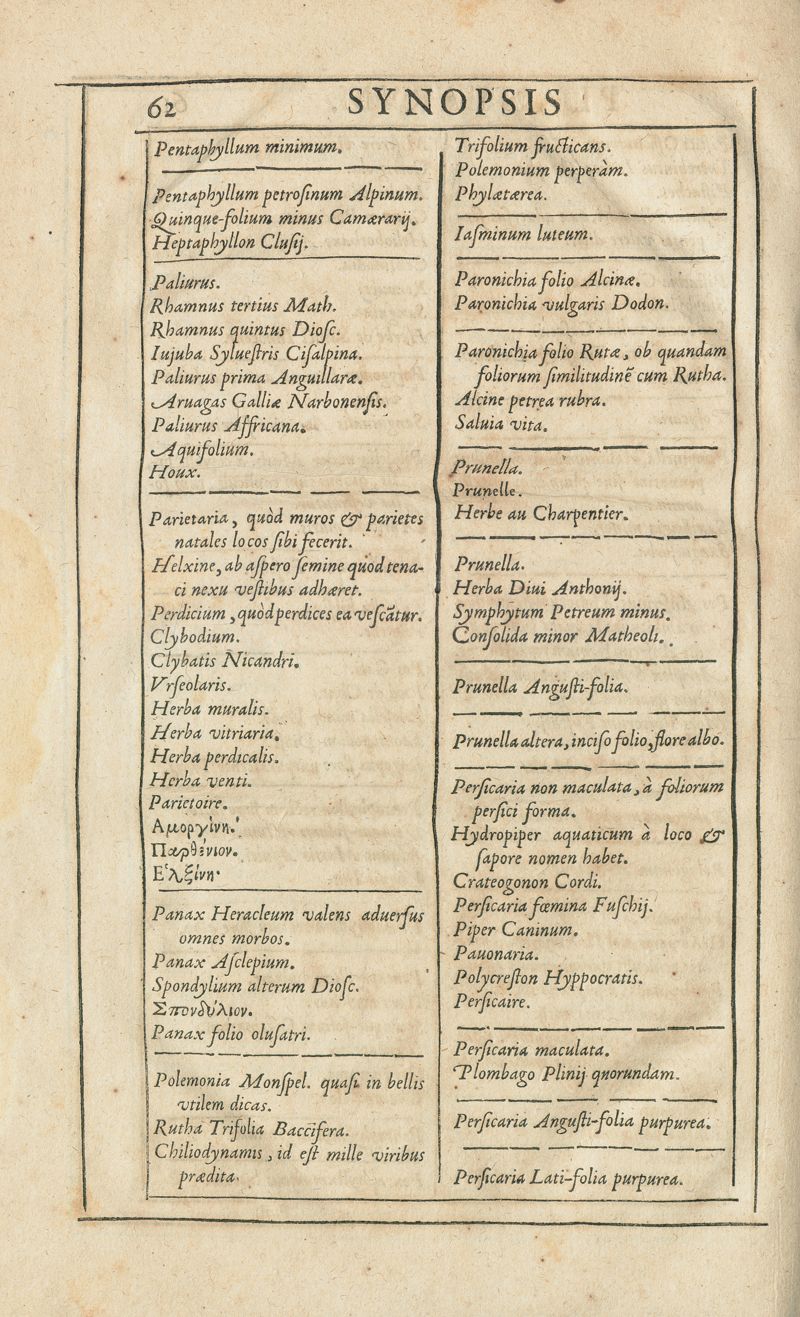 62 SYNOPSIS
Pentaphyllum minimum.
Pentaphyllum petroſinum Alpinum.
Quinque-folium minus Camærarij.
Heptaphyllon Cluſij.
Paliurus.
Rhamnus tertius Math.
Rhamnus quintus Dioſc.
Iujuba Sylueſtris Ciſalpina.
Paliurus prima Anguillaræ.
Aruagas Galliæ Narbonenſis.
Paliurus Affricana.
Aquifolium.
Houx.
Parietaria, quòd muros & parietes
natales locos ſibi fecerit.
Helxine, ab aſpero ſemine quòd tena-
ci nexu veſtibus adhæret.
Perdicium, quòd perdices ea veſcãtur.
Clybodium.
Clybatis Nicandri.
Vrſeolaris.
Herba muralis.
Herba vitriaria.
Herba perdicalis.
Herba venti.
Parietoire.
Αμοργίνη.
Παρθένιον.
Ε῾λξίνη·
Panax Heracleum valens aduerſus
omnes morbos.
Panax Aſclepium.
Spondylium alterum Dioſc.
Σπονδύλιον.
Panax folio oluſatri.
Polemonia Monſpel. quaſi in bellis
vtilem dicas.
Rutha Trifolia Baccifera.
Chiliodynamis, id eſt mille viribus
prædita.
Trifolium fructicans.
Polemonium perperàm.
Phylætærea.
Iaſminum luteum.
Paronichia folio Alcinæ.
Paronichia vulgaris Dodon.
Paronichia folio Rutæ, ob quandam
foliorum ſimilitudinẽ cum Rutha.
Alcine petrea rubra.
Saluia vita.
Prunella.
Prunelle.
Herbe au Charpentier.
Prunella.
Herba Diui Anthonij.
Symphytum Petreum minus.
Conſolida minor Matheoli.
Prunella Anguſti-folia.
Prunella altera, inciſo folio, flore albo.
Perſicaria non maculata, à foliorum
perſici forma.
Hydropiper aquaticum à loco &
ſapore nomen habet.
Crateogonon Cordi.
Perſicaria fœmina Fuſchij.
Piper Caninum.
Pauonaria.
Polycreſton Hyppocratis.
Perſicaire.
Perſicaria maculata.
Plombago Plinij quorundam.
Perſicaria Anguſti-folia purpurea.
Perſicaria Lati-folia purpurea.